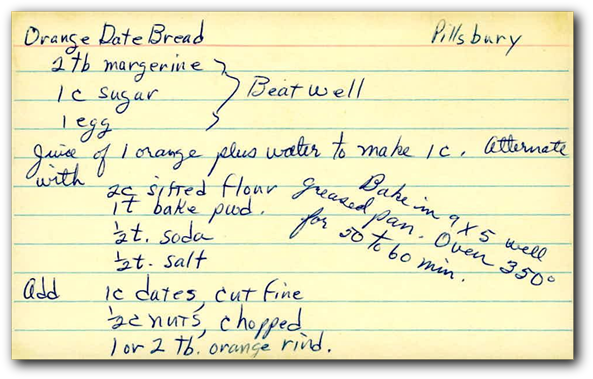 Orange Date Bread Pillsbury
2 tb margerine
1 c sugar
1 egg
Beat well
Juice of 1 orange plus water to make 1 c. Alternate
with
2c sifted flour
1t bake pwd.
½t. soda
½t. salt
Bake in 9x5 well
greased pan. Oven 350°
for 50 to 60 min.
Add 1c dates, cut fine
½c nuts, chopped
1 or 2 tb. orange rind.